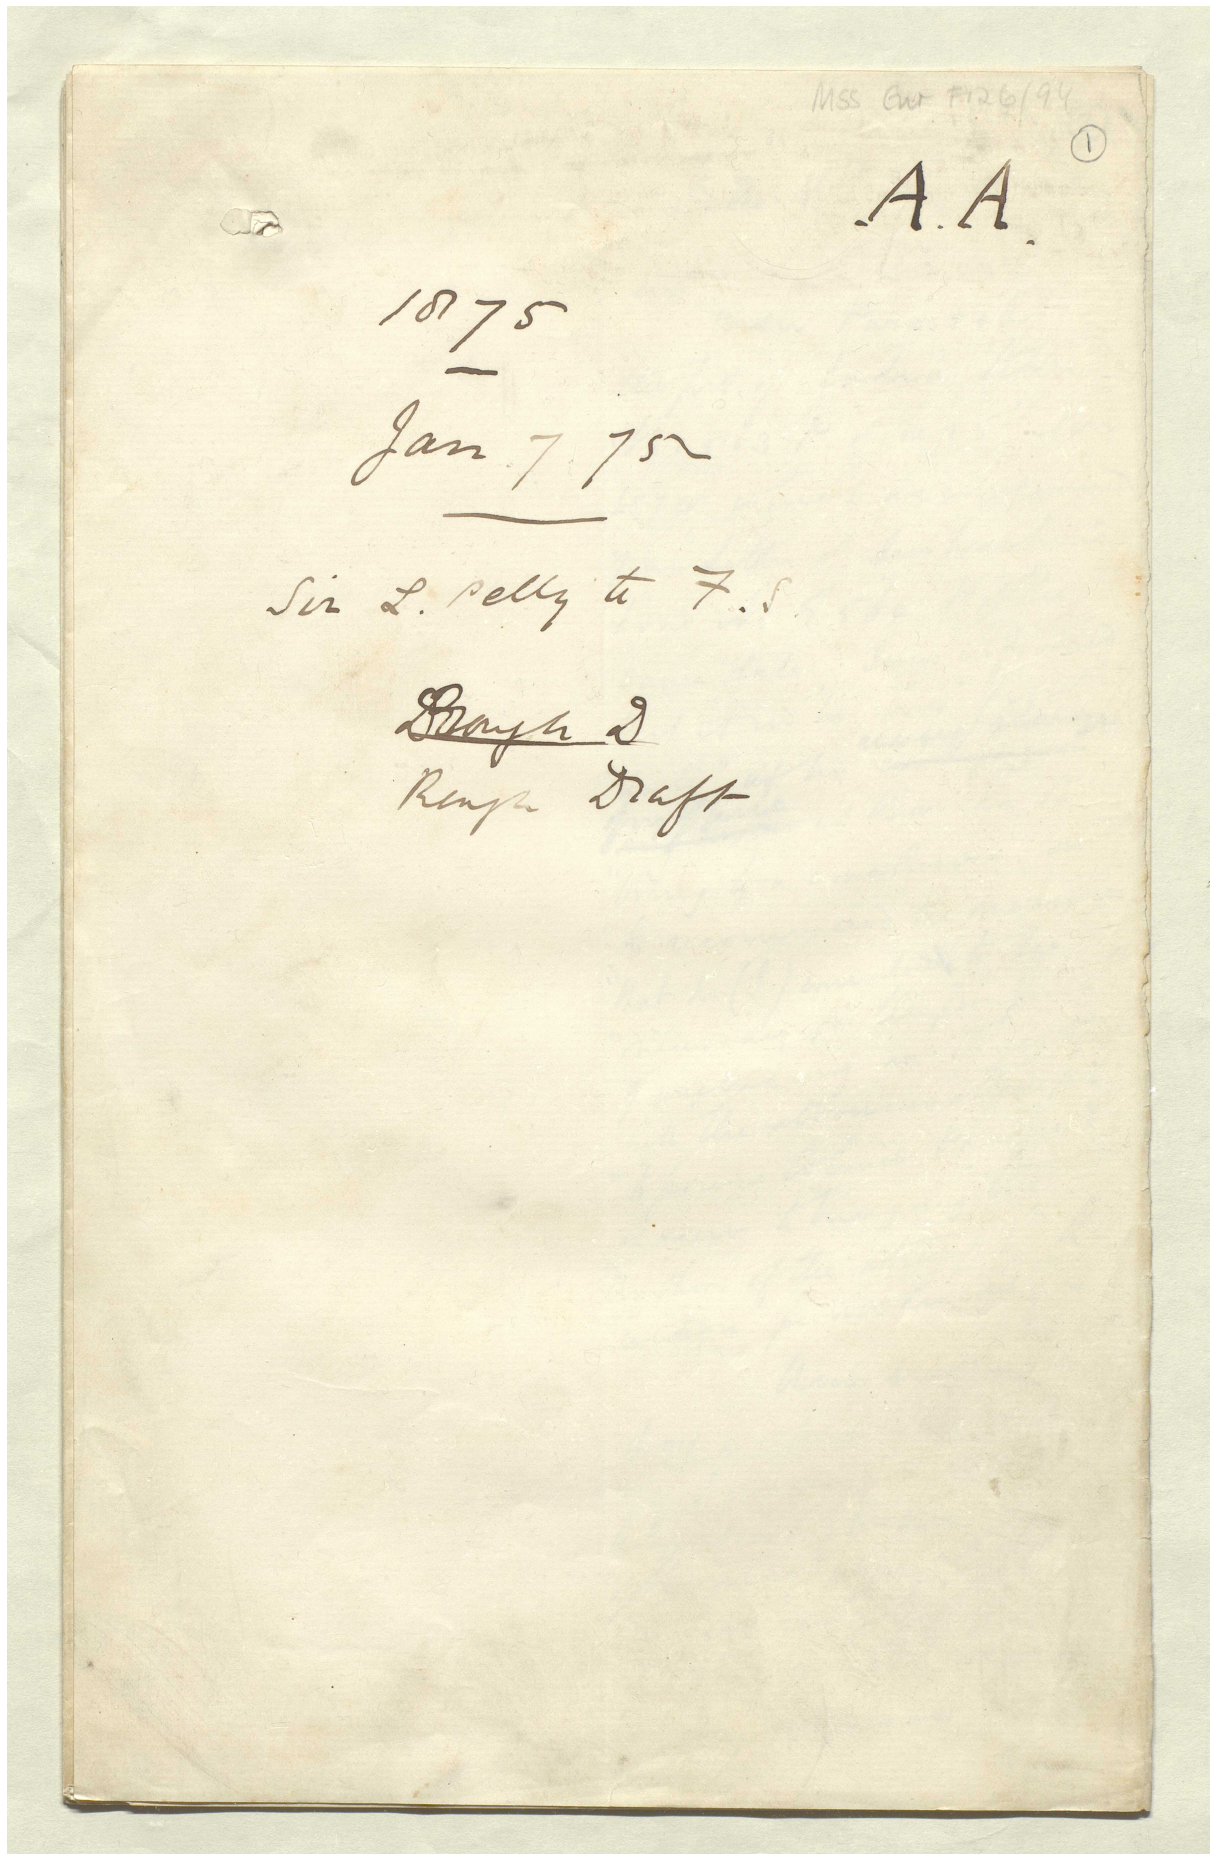 Mss Eur F126/94
1
.A.A.
1875
Jan 7 75
Sir L. Pelly to F.S.
Drough D
Rough Draft